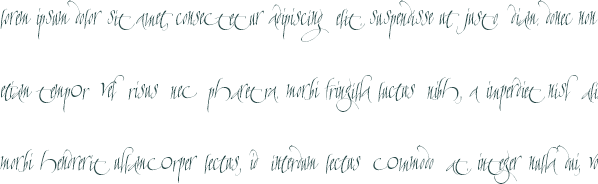 lorem ipsum dolor sit amet, consectetur adipiscing elit. suspendisse ut justo diam. donec non
etiam tempor vel risus nec pharetra. morbi fringilla luctus nibh, a imperdiet nisl
morbi hendrerit ullamcorper lectus, id interdum lectus commodo at. integer nulla dui,